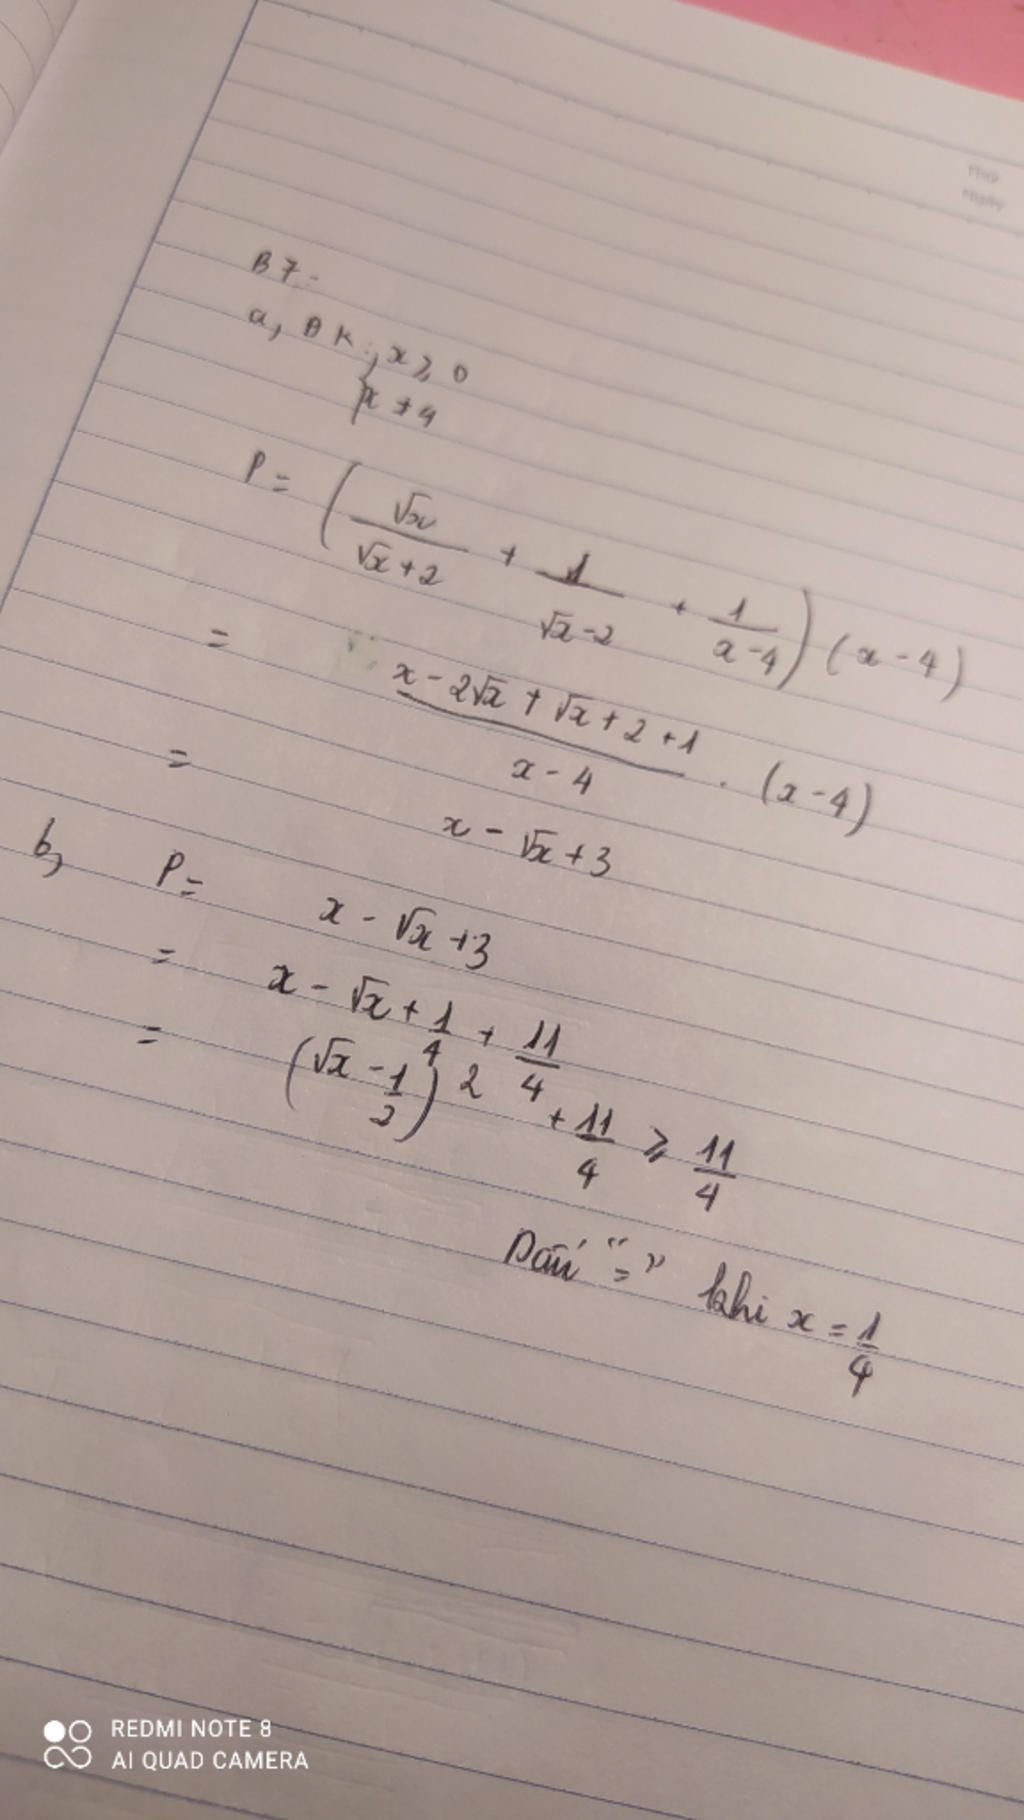 B7:
a, ĐK: { x ≥ 0
x ≠ 4
P = ( √x / (√x + 2) + 1 / (√x - 2) + 1 / (x - 4) ) (x - 4)
= (x - 2√x + √x + 2 + 1) / (x - 4) . (x - 4)
= x - √x + 3
b, P = x - √x + 3
= x - √x + 1/4 + 11/4
= (√x - 1/2)2 + 11/4 ≥ 11/4
Dấu "=" khi x = 1/4
REDMI NOTE 8
AI QUAD CAMERA